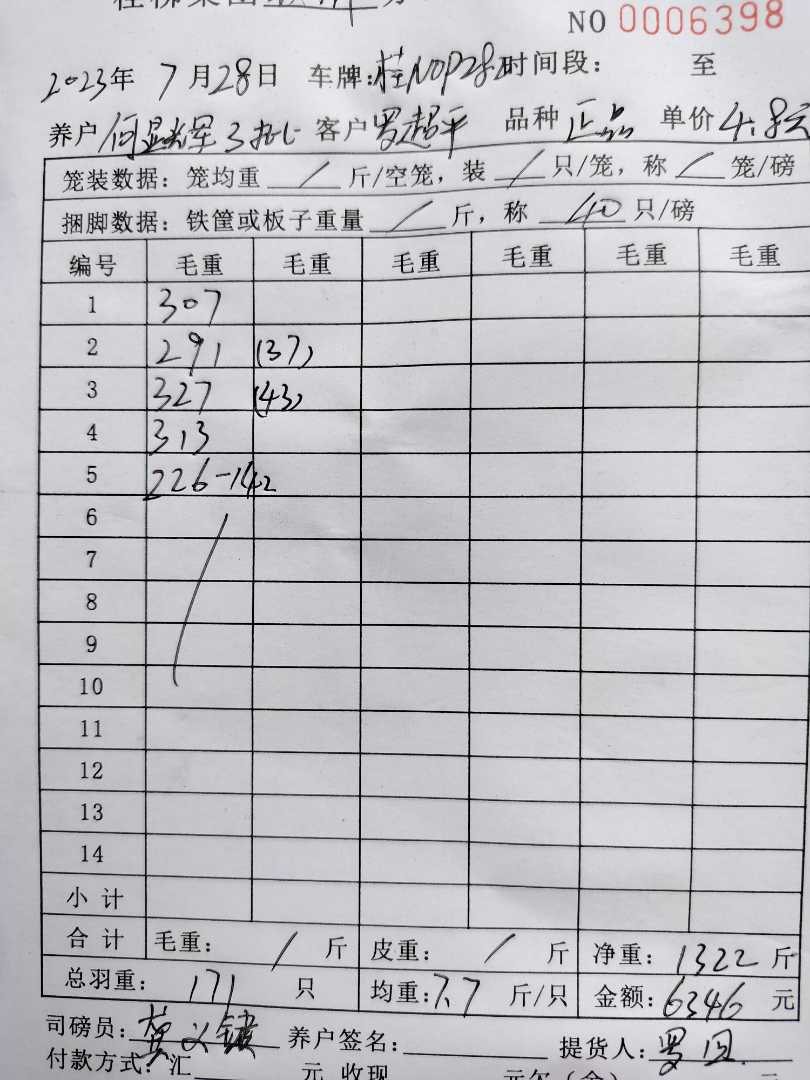 NO 0006398
2023年 7月28日 车牌: 时间段: 至
养户 客户 罗超平 品种 正品 单价 4.8元
笼装数据: 笼均重 / 斤/空笼, 装 / 只/笼, 称 / 笼/磅
捆脚数据: 铁筐或板子重量 / 斤, 称 40 只/磅
编号 毛重 毛重 毛重 毛重 毛重 毛重
1 307
2 291 (37)
3 327 (43)
4 313
5 226-142
6
7
8
9
10
11
12
13
14
小 计
合 计 毛重: / 斤 皮重: / 斤 净重: 1322 斤
总羽重: 171 只 均重: 7.7 斤/只 金额: 6346 元
司磅员: 养户签名: 提货人: 罗
付款方式: 汇 元 收现 元欠(余) 元